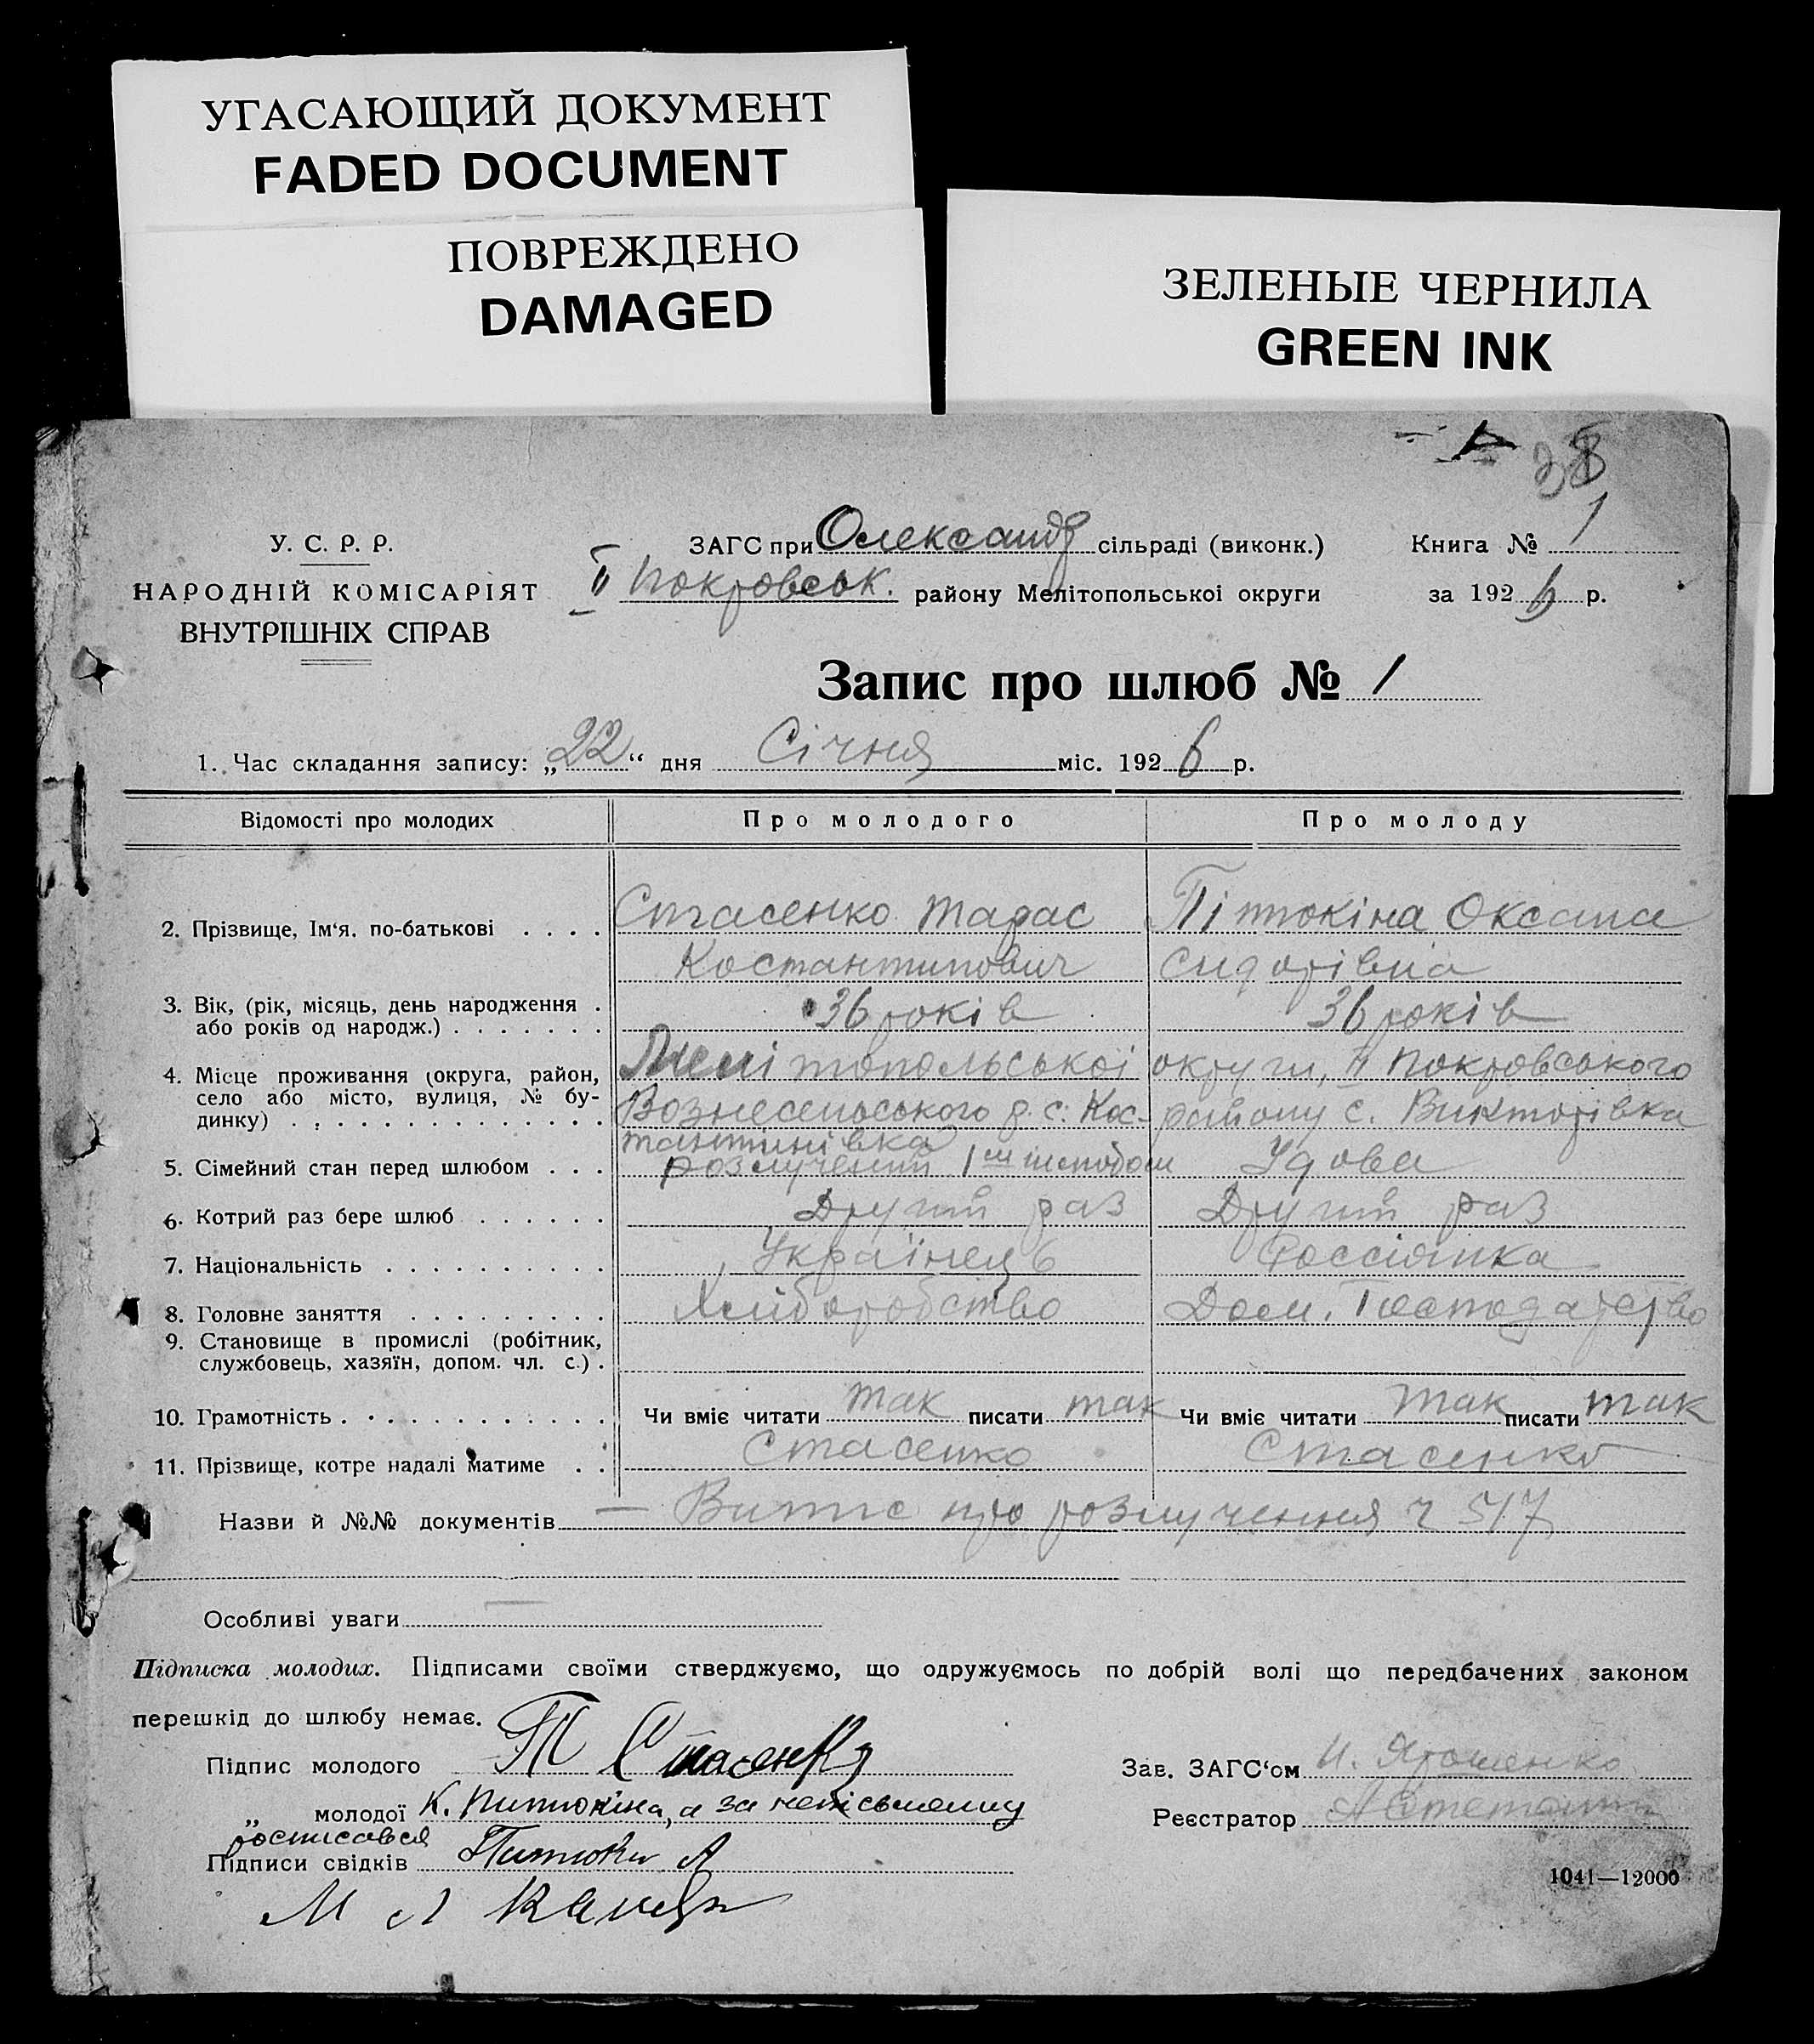 УГАСАЮЩИЙ ДОКУМЕНТ
FADED DOCUMENT
ПОВРЕЖДЕНО
DAMAGED
ЗЕЛЕНЫЕ ЧЕРНИЛА
GREEN INK
У. С. Р. Р.
НАРОДНІЙ КОМІСАРІЯТ
ВНУТРІШНІХ СПРАВ
ЗАГС при Олександр сільраді (виконк.)
II Покровськ. району Мелітопольської округи
Книга № 1
за 1926 р.
Запис про шлюб № 1
1. Час складання запису: „22“ дня Січня міс. 1926 р.
Відомості про молодих Про молодого Про молоду
2. Прізвище, Ім'я, по-батькові . . . . Стасенко Тарас Пітюкіна Оксана
Костантинович Сидорівна
3. Вік, (рік, місяць, день народження . 36 років 36 років
або років од народж.) . . . . . . .
4. Місце проживання (округа, район, Мелітопольської округи, II Покровського
село або місто, вулиця, № бу- Вознесенського р. с. Кос- району с. Викторівка
динку) . . . . . . . . . . . . . . тантинівка
5. Сімейний стан перед шлюбом . . . розлучений 1им шлюбом Удова
6. Котрий раз бере шлюб . . . . . . Другий раз Другий раз
7. Національність . . . . . . . . . . Українець Россіянка
8. Головне заняття . . . . . . . . . Хліборобство Дом. Господарство
9. Становище в промислі (робітник,
службовець, хазяїн, допом. чл. с.) .
10. Грамотність . . . . . . . . . . . . Чи вміє читати так писати так Чи вміє читати так писати так
11. Прізвище, котре надалі матиме . . Стасенко Стасенко
Назви й №№ документів — Витис про розлучення ч 517
Особливі уваги
Підписка молодих. Підписами своїми стверджуємо, що одружуємось по добрій волі що передбачених законом
перешкід до шлюбу немає.
Підпис молодого Т Стасенко
„ молодої К. Питюкіна, а за непісьменну
росписався
Підписи свідків Питюкін А
М Л
Зав. ЗАГС'ом И. Ярошенко
Реєстратор
1041—12000